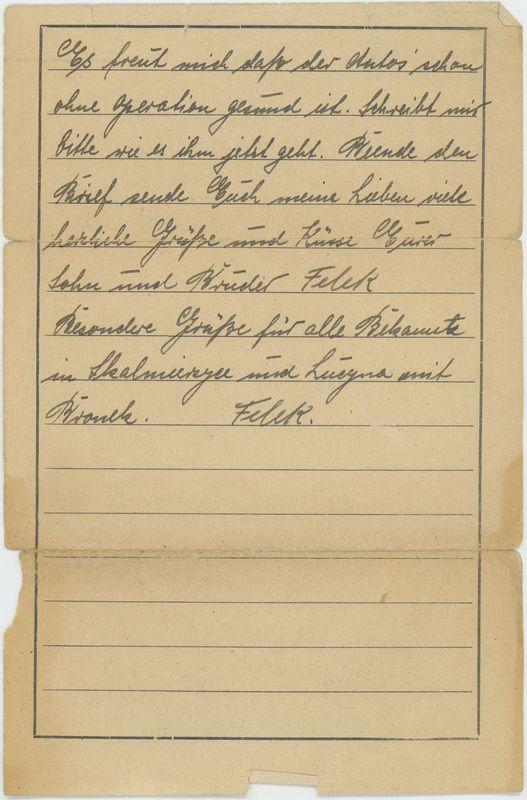 Es freut mich daß der Antoś schon
ohne Operation gesund ist. Schreibt mir
bitte wie es ihm jetzt geht. Beende den
Brief sende Euch meine Lieben viele
herzliche Grüße und Küsse Euer
Sohn und Bruder Felek
Besondere Grüße für alle Bekannte
in Skalmierzyce und Lucyna mit
Bronek. Felek.